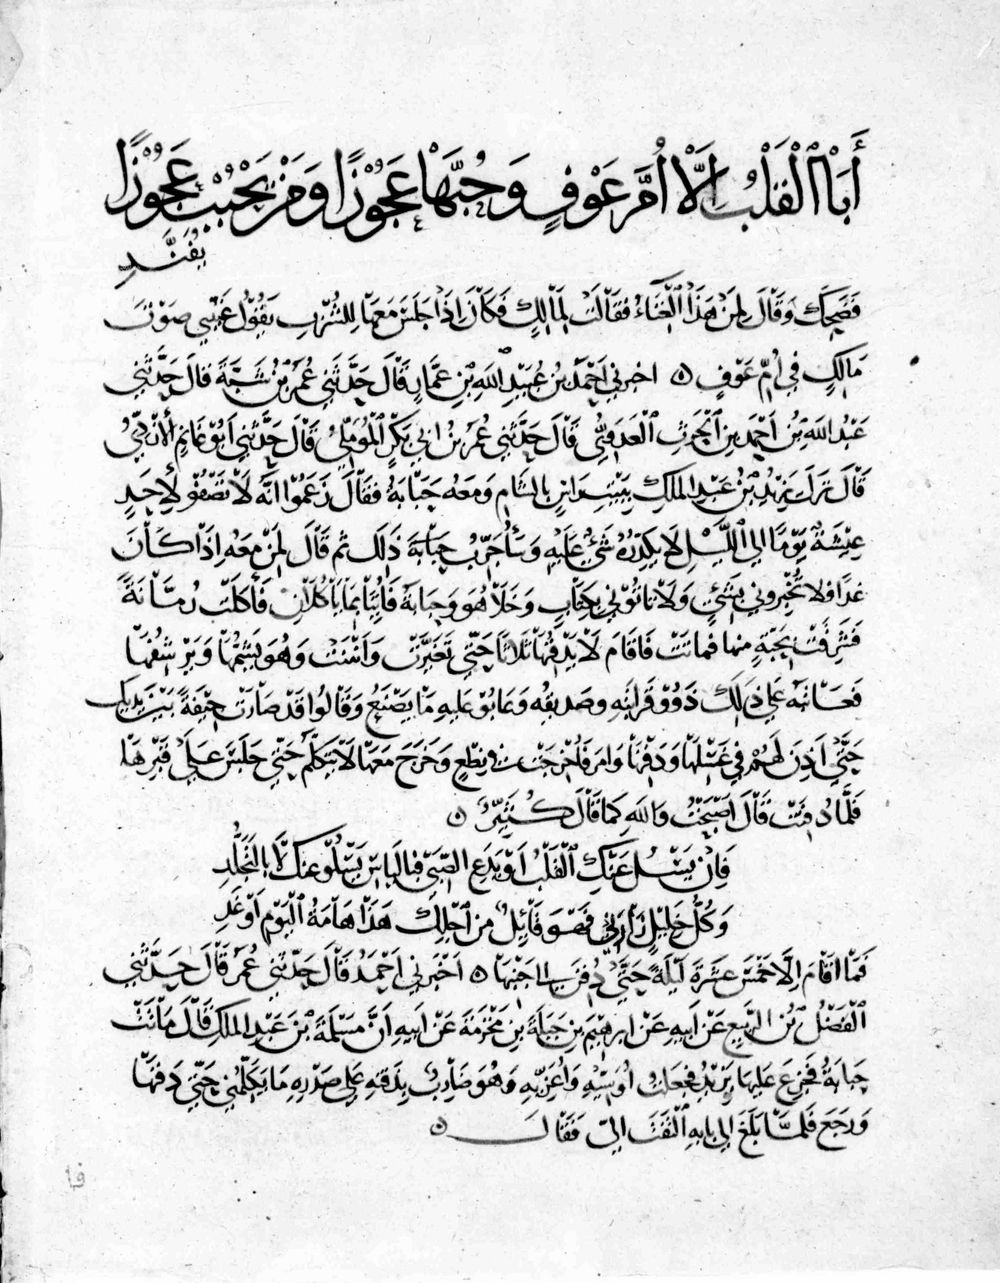 أَبَا الْقَلْبُ إِلَّا أُمَّ عَوْفٍ وَحُبَّهَا عَجُوْزًا وَمَنْ يَحْبُبْ عَجُوْزًا
يُفَنَّدِ
فَضَحِكَ وَقَالَ لِمَنْ هَذَا الْغِنَاءُ فَقَالَتْ لِمَالِكٍ فَكَانَ إِذَا جَلَسَ مَعَهَا لِلشُّرْبِ يَقُوْلُ غَنِّيْنِي صَوْتَ
مَالِكٍ فِي أُمِّ عَوْفٍ ه اخبرني أَحْمَدُ بْنُ عُبَيْدِ اللَّهِ بْنِ عَمَّارٍ قَالَ حَدَّثَنِي عُمَرُ بْنُ شَبَّةَ قَالَ حَدَّثَنِي
عَبْدُ اللَّهِ بْنُ أَحْمَدَ بْنِ الْحَرِثِ الْعَدَوِيُّ قَالَ حَدَّثَنِي عُمَرُ بْنُ أَبِي بَكْرٍ الْمُؤَمِّلِيُّ قَالَ حَدَّثَنِي أَبُوْ غَانِمٍ الْأَزْدِيُّ
قَالَ نَزَلَ يَزِيْدُ بْنُ عَبْدِ الْمَلِكِ بِبَيْتِ رَاسٍ بِالشَّامِ وَمَعَهُ حَبَابَةُ فَقَالَ زَعَمُوْا أَنَّهُ لَا تَصْفُوْ لِأَحَدٍ
عِيْشَةٌ يَوْمًا إِلَى اللَّيْلِ لَا يُكَدِّرُهُ شَيْءٌ عَلَيْهِ وَسَأُجَرِّبُ حَبَابَةَ ذَلِكَ ثُمَّ قَالَ لِمَنْ مَعَهُ إِذَا كَانَ
غَدًا فَلَا تُخْبِرُونِي بِشَيْءٍ وَلَا تَاتُوْنِي بِكِتَابٍ وَخَلَا هُوَ وَحَبَابَةُ فَأُتِيَا بِمَا يَاْكُلَانِ فَأَكَلَتْ رُمَّانَةً
فَشَرِقَتْ بِحَبَّةٍ مِنْهَا فَمَاتَتْ فَاقَامَ لَا يَدْفِنُهَا ثَلَاثًا حَتَّى تَغَيَّرَتْ وَأَنْتَنَتْ وَهُوَ يَشُمُّهَا وَيَرْشِفُهَا
فَعَاتَبَهُ عَلَى ذَلِكَ ذَوُوْ قَرَابَتِهِ وَصَدِيقُهُ وَعَابُوْ عَلَيْهِ مَا يَصْنَعُ وَقَالُوا قَدْ صَارَتْ جِيْفَةً بَيْنَ يَدَيْكَ
حَتَّى أَذِنَ لَهُمْ فِي غَسْلِهَا وَدَفْنِهَا وَامَرَ فَأُخْرِجَتْ فِي نِطْعٍ وَخَرَجَ مَعَهَا لَا يَتَكَلَّمُ حَتَّى جَلَسَ عَلَى قَبْرِهَا
فَلَمَّا دُفِنَتْ قَالَ أَصْبَحْتُ وَاللَّهِ كَمَا قَالَ كُثَيِّرٌ ه
فَإِنْ يَسْلُ عَنْكِ الْقَلْبُ أَوْ يَدَعِ الصِّبَى فَبِالْيَاسِ يَسْلُوْ عَنْكِ لَا بِالتَّجَلُّدِ
وَكُلُّ خَلِيْلٍ رَاءَنِي فَهْوَ قَائِلٌ مِنْ أَجْلِكِ هَذَا هَامَةُ الْيَوْمِ أَوْ غَدِ
فَمَا أَقَامَ إِلَّا خَمْسَ عَشَرَةَ لَيْلَةً حَتَّى دُفِنَ إِلَى جَنْبِهَا ه أَخْبَرَنِي أَحْمَدُ قَالَ حَدَّثَنِي عُمَرُ قَالَ حَدَّثَنِي
الْفَضْلُ بْنُ الرَّبِيعِ عَنْ أَبِيهِ عَنْ إِبْرَاهِيْمَ بْنِ جَبَلَةَ بْنِ مَخْرَمَةَ عَنْ أَبِيهِ أَنَّ مَسْلَمَةَ بْنَ عَبْدِ الْمَلِكِ قَالَ مَاتَتْ
حَبَابَةُ فَجَزِعَ عَلَيْهَا يَزِيْدُ فَجَعَلْتُ أُوَسِّيْهِ وَأُعَزِّيْهِ وَهُوَ ضَارِبٌ بِذَقَنِهِ عَلَى صَدْرِهِ مَا يُكَلِّمُنِي حَتَّى دَفَنَهَا
وَرَجَعَ فَلَمَّا بَلَغَ إِلَى بَابِهِ الْتَفَتَ إِلَيَّ فَقَالَ ه